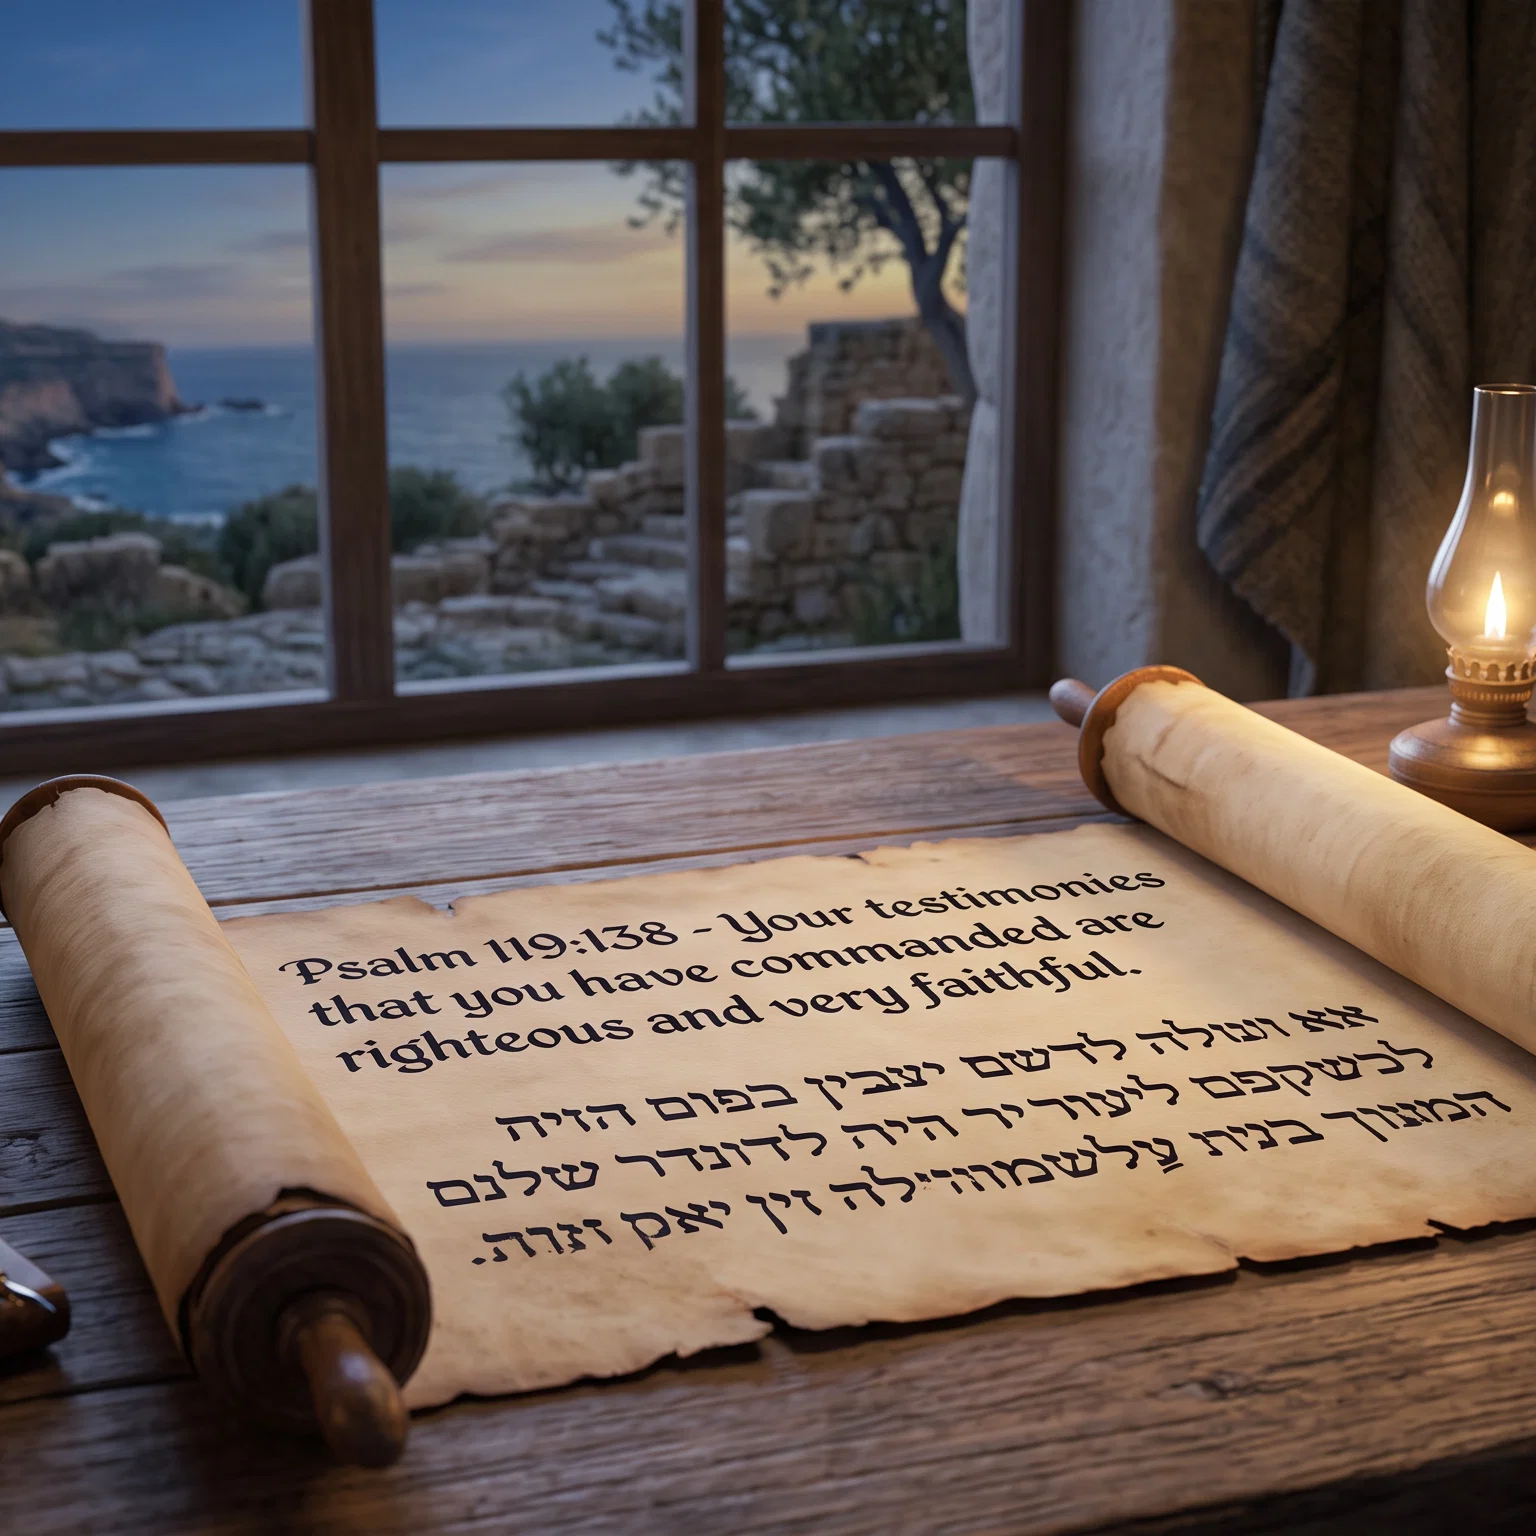 Psalm 119:138 - Your testimonies
that you have commanded are
righteous and very faithful.
אא ועולה לדשם יעבין בפום הזיה
לכשקפם ליעוריר היה לדונדר שלנם
בנית זין יאק